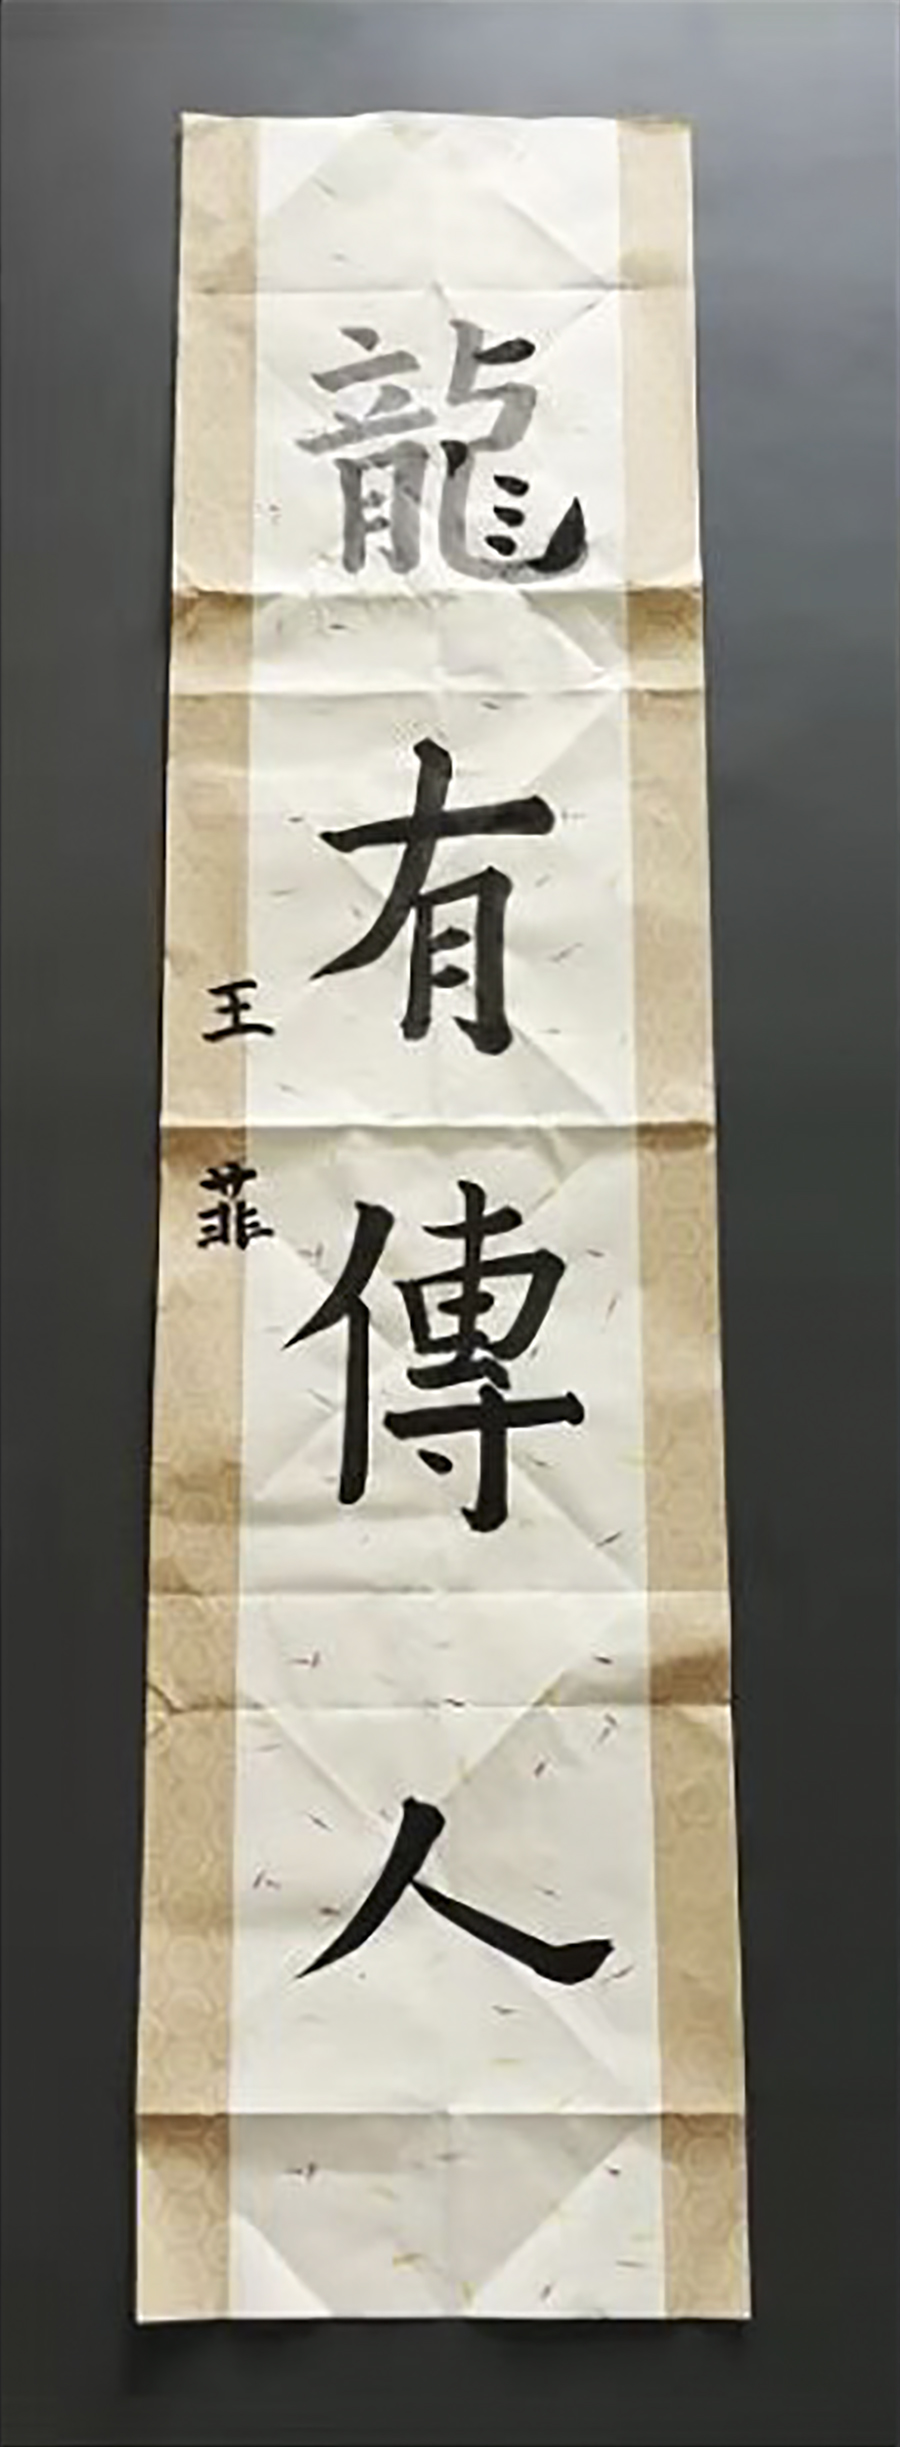 龍有傳人
王菲